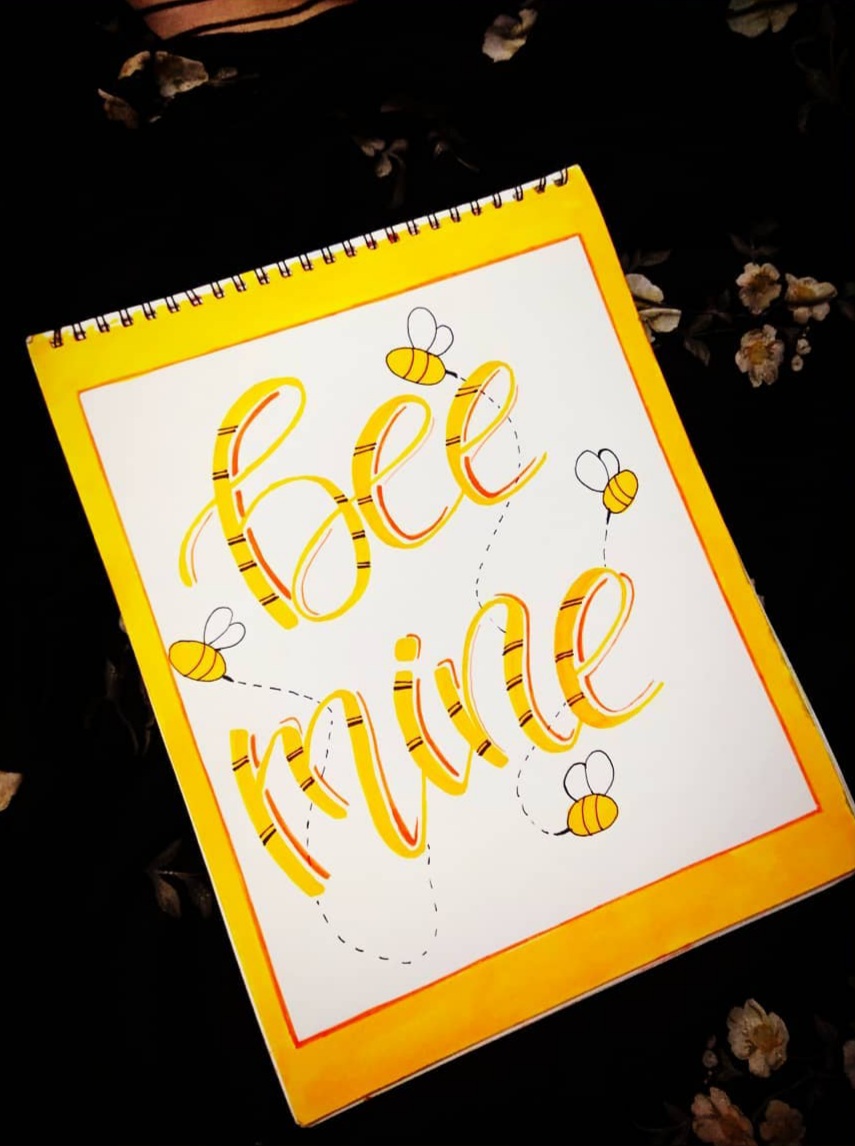 bee
mine